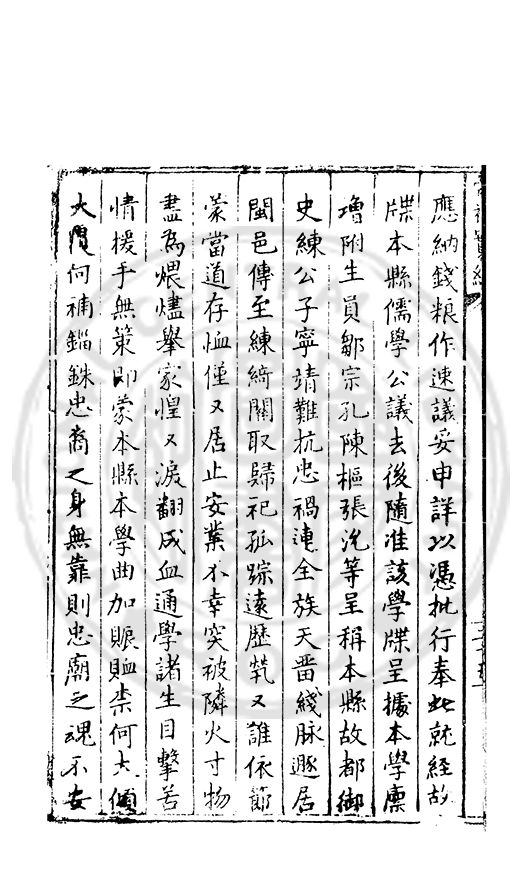 應納錢粮作速議妥申詳以憑批行奉此就經故
牒本縣儒學公議去後隨准該學牒呈據本學廪
增附生員鄒宗孔陳樞張洸等呈稱本縣故都御
史練公子寧靖難抗忠禍連全族天畱綫脉遯居
閩邑傳至練綺關取歸祀孤踪遠歷煢又誰依節
蒙當道存恤僅又居止安業不幸突被隣火寸物
盡為煨燼舉家惶又淚翻成血通學諸生目擊苦
情援手無策即蒙本縣本學曲加賑賉柰何大傾
大廈何補錙銖忠裔之身無靠則忠廟之魂不安